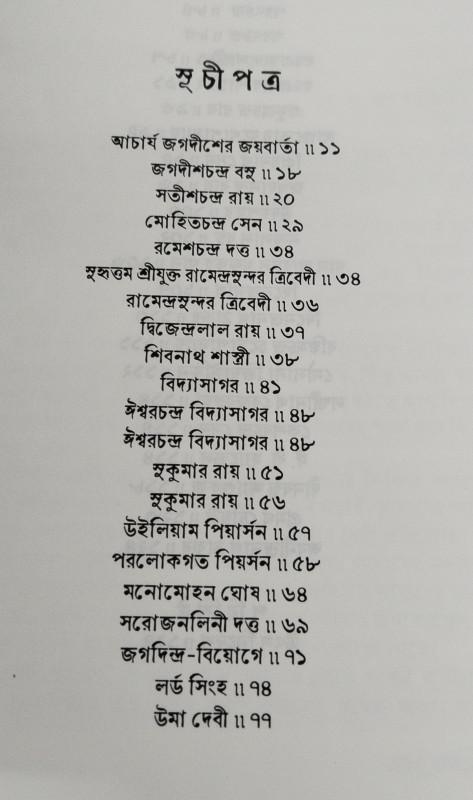 সূচীপত্র
আচার্য জগদীশের জয়বার্তা ॥ ১১
জগদীশচন্দ্র বসু ॥ ১৮
সতীশচন্দ্র রায় ॥ ২০
মোহিতচন্দ্র সেন ॥ ২৯
রমেশচন্দ্র দত্ত ॥ ৩৪
সুহৃত্তম শ্রীযুক্ত রামেন্দ্রসুন্দর ত্রিবেদী ॥ ৩৪
রামেন্দ্রসুন্দর ত্রিবেদী ॥ ৩৬
দ্বিজেন্দ্রলাল রায় ॥ ৩৭
শিবনাথ শাস্ত্রী ॥ ৩৮
বিদ্যাসাগর ॥ ৪১
ঈশ্বরচন্দ্র বিদ্যাসাগর ॥ ৪৮
ঈশ্বরচন্দ্র বিদ্যাসাগর ॥ ৪৮
সুকুমার রায় ॥ ৫১
সুকুমার রায় ॥ ৫৬
উইলিয়াম পিয়ার্সন ॥ ৫৭
পরলোকগত পিয়র্সন ॥ ৫৮
মনোমোহন ঘোষ ॥ ৬৪
সরোজনলিনী দত্ত ॥ ৬৯
জগদিন্দ্র-বিয়োগে ॥ ৭১
লর্ড সিংহ ॥ ৭৪
উমা দেবী ॥ ৭৭